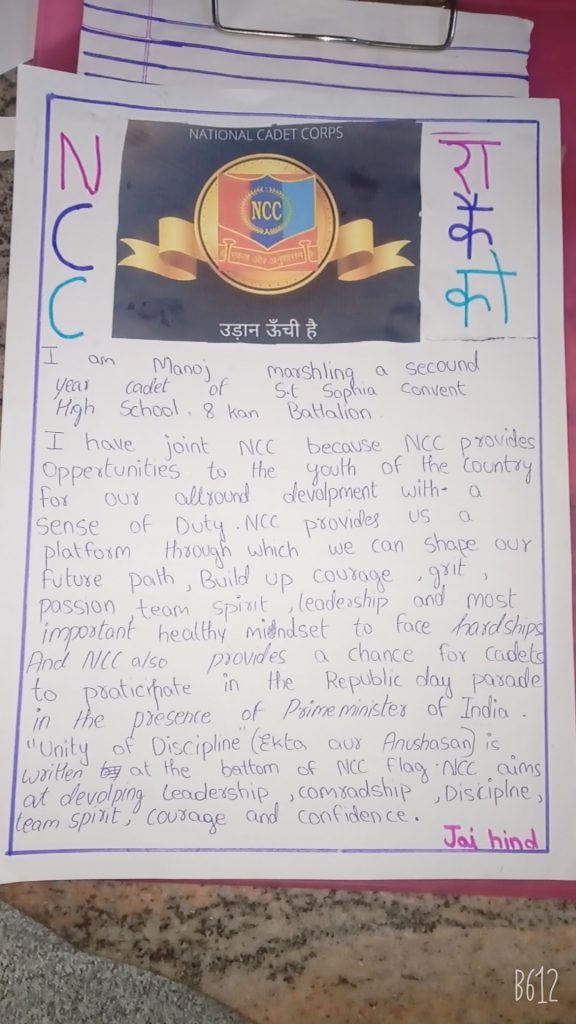 NATIONAL CADET CORPS
N
C
C
NCC
एकता और अनुशासन
उड़ान ऊँची है
रा
कै
को
I am Manoj marshling a secound
year cadet of S.t Sophia Convent
High School. 8 kan Battalion
I have joint NCC because NCC provides
Oppertunities to the youth of the Country
for our allround devolpment with- a
sense of Duty. NCC provides us a
platform through which we can shape our
future path, Build up courage, grit,
passion, team spirit, leadership and most
important, healthy mindset to face hardships
And NCC also provides a chance for cadets
to praticipate in the Republic day parade
in the presence of Prime minister of India.
"Unity of Discipline" (Ekta aur Anushasan) is
written at the bottom of NCC flag. NCC aims
at devolping leadership, comradship, Disciplne,
team spirit, Courage and confidence.
Jai hind
B612